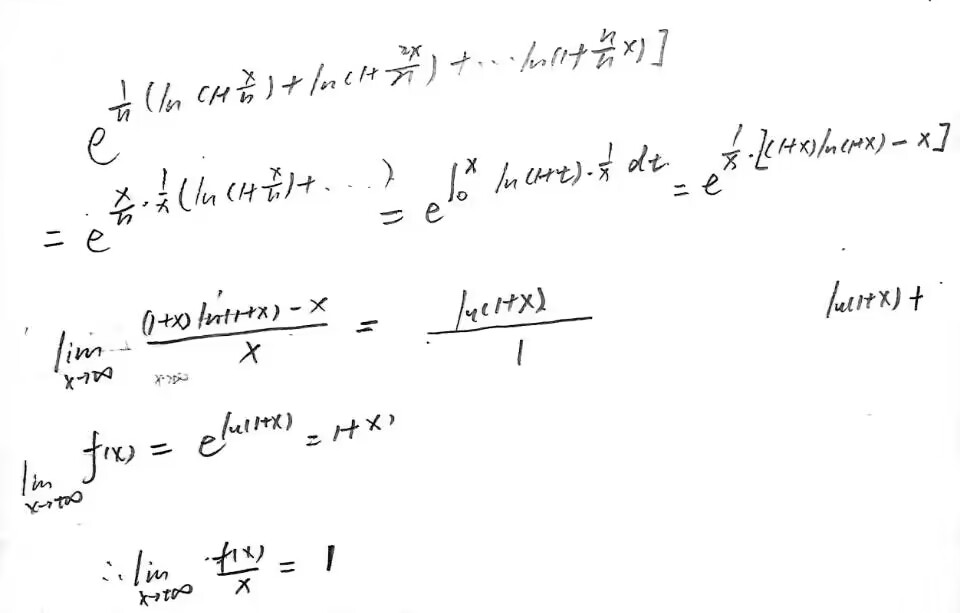 e^{\frac{1}{n}(\ln(1+\frac{x}{n})+\ln(1+\frac{2x}{n})+\cdots\ln(1+\frac{n}{n}x)]}
= e^{\frac{x}{n}\cdot\frac{1}{x}(\ln(1+\frac{x}{n})+\cdots)} = e^{\int_0^x \ln(1+t)\cdot\frac{1}{x}dt} = e^{\frac{1}{x}\cdot[(1+x)\ln(1+x)-x]}
\lim_{x\to\infty} \frac{(1+x)\ln(1+x)-x}{x} = \frac{\ln(1+x)}{1} \ln(1+x)+
\lim_{x\to+\infty} f(x) = e^{\ln(1+x)} = 1+x
\therefore \lim_{x\to+\infty} \frac{f(x)}{x} = 1